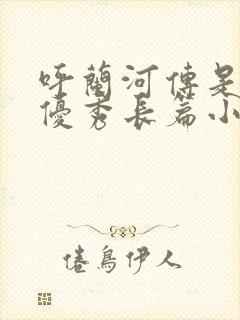 呼蘭河傳是
優秀長篇小
倦鳥伊人